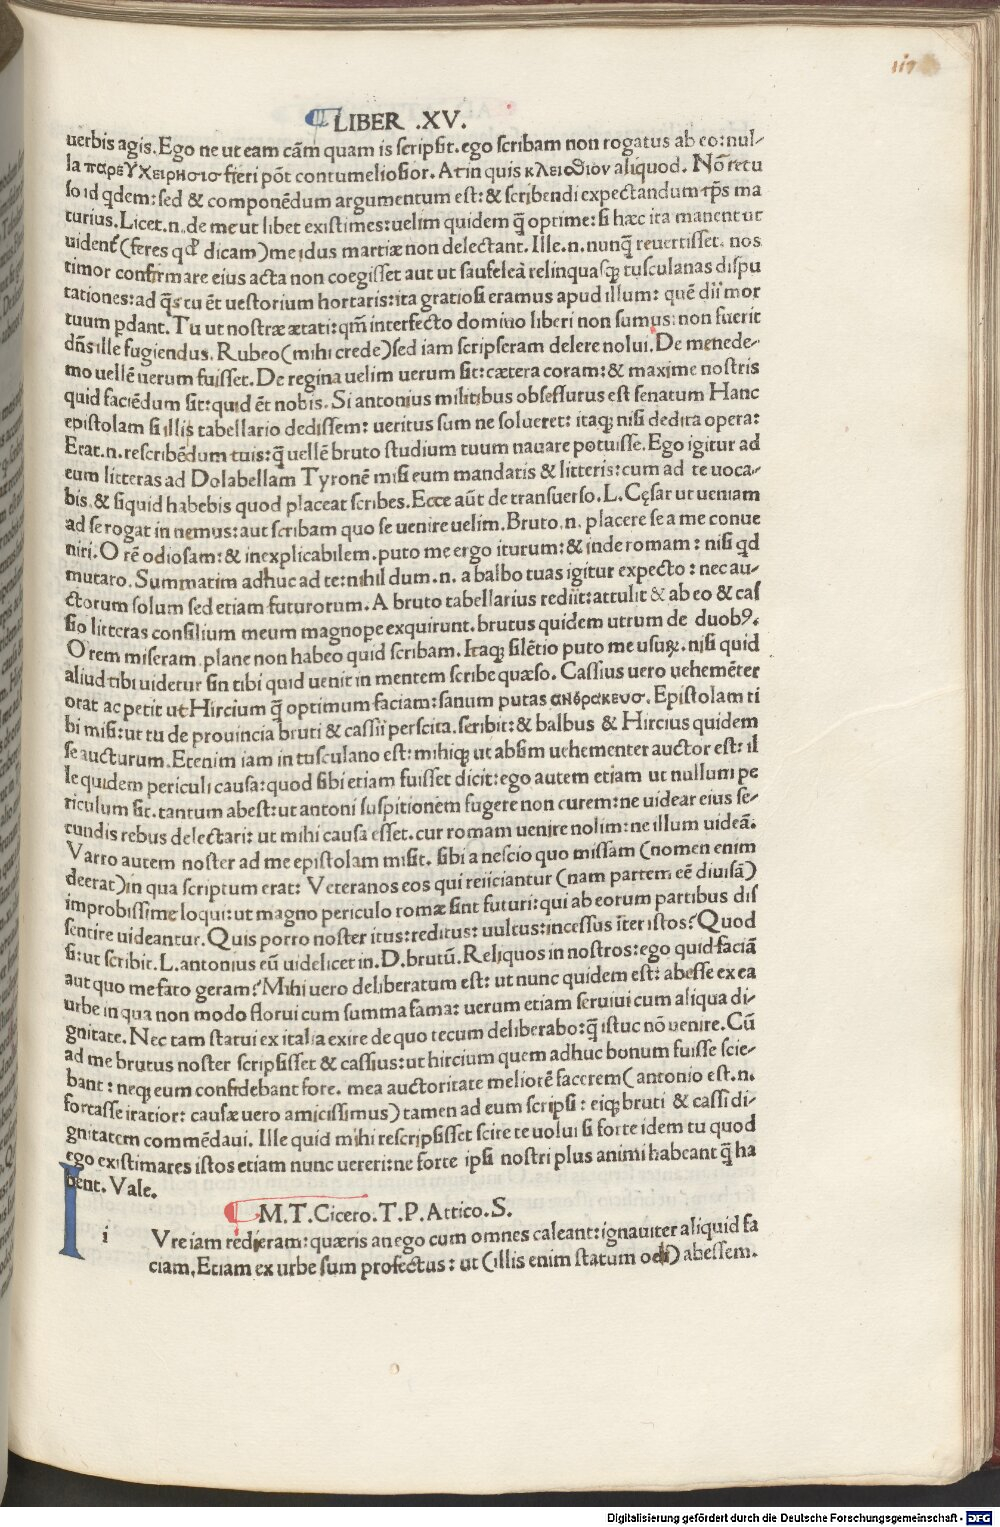 117
LIBER .XV.
uerbis agis. Ego ne ut eam cām quam is scripsit. ego scribam non rogatus ab eo: nul-
la παρεγχειρησισ fieri pōt contumeliosior. Atin quis κλειδιον aliquod. Nō retu
so id q̄dem: sed & componēdum argumentum est: & scribendi expectandum tp̄s ma
turius. Licet .n. de me ut libet existimes: uelim quidem q̄ optime: si hæc ita manent ut
uident̄ (feres qd̄ dicam) me idus martiæ non delectant. Ille .n. nunq̄ reuertisset. nos
timor confirmare eius acta non coegisset aut ut saufeleā relinquasq; tusculanas dispu
tationes: ad q̄s tu ēt uestorium hortaris: ita gratiosi eramus apud illum: quē dii mor
tuum pdant. Tu ut nostræ ætati: qm̄ interfecto domino liberi non sumus: non fuerit
dn̄s ille fugiendus. Rubeo (mihi crede) sed iam scripseram delere nolui. De menede-
mo uellē uerum fuisset. De regina uelim uerum sit: cætera coram: & maxime nostris
quid faciēdum sit: quid ēt nobis. Si antonius militibus obsessurus est senatum Hanc
epistolam si illis tabellario dedissem: ueritus sum ne solueret: itaq; nisi dedita opera:
Erat .n. rescribēdum tuis: q̄ uellē bruto studium tuum nauare potuisse. Ego igitur ad
eum litteras ad Dolabellam Tyronē misi eum mandatis & litteris: cum ad te uoca-
bis. & siquid habebis quod placeat scribes. Ecce aūt de transuerso. L. Cęsar ut ueniam
ad se rogat in nemus: aut scribam quo se uenire uelim. Bruto .n. placere se a me conue
niri. O rē odiosam: & inexplicabilem. puto me ergo iturum: & inde romam: nisi qd
mutaro. Summatim adhuc ad te: nihil dum .n. a balbo tuas igitur expecto: nec au-
ctorum solum sed etiam futurorum. A bruto tabellarius rediit: attulit & ab eo & cas
sio litteras consilium meum magnope exquirunt. brutus quidem utrum de duobꝰ.
O rem miseram. plane non habeo quid scribam. Itaq; silētio puto me usuꝝ. nisi quid
aliud tibi uidetur sin tibi quid uenit in mentem scribe quæso. Cassius uero uehemēter
orat ac petit ut Hircium q̄ optimum faciam: sanum putas ανθρακευσ. Epistolam ti
bi misi: ut tu de prouincia bruti & cassii perscita. scribit: & balbus & Hircius quidem
se aucturum. Etenim iam in tusculano est: mihiq; ut absim uehementer auctor est: il
le quidem periculi causa: quod sibi etiam fuisset dicit: ego autem etiam ut nullum pe
riculum sit. tantum abest: ut antoni suspitionem fugere non curem: ne uidear eius se-
cundis rebus delectari: ut mihi causa esset. cur romam uenire nolim: ne illum uideā.
Varro autem noster ad me epistolam misit. sibi a nescio quo missam (nomen enim
deerat) in qua scriptum erat: Veteranos eos qui reiiciantur (nam partem eē diuisā)
improbissime loqui: ut magno periculo romæ sint futuri: qui ab eorum partibus dis
sentire uideantur. Quis porro noster itus: reditus: uultus: incessus īter istos? Quod
si: ut scribit. L. antonius eū uidelicet in. D. brutū. Reliquos in nostros: ego quid faciā
aut quo me fato geram? Mihi uero deliberatum est: ut nunc quidem est: abesse ex ea
urbe in qua non modo florui cum summa fama: uerum etiam seruiui cum aliqua di-
gnitate. Nec tam statui ex italia exire de quo tecum deliberabo: q̄ istuc nō uenire. Cū
ad me brutus noster scripsisset & cassius: ut hircium quem adhuc bonum fuisse scie-
bant: neq; eum confidebant fore. mea auctoritate meliorē facerem (antonio est .n.
fortasse iratior: causæ uero amicissimus) tamen ad eum scripsi: eiq; bruti & cassi di-
gnitatem commēdaui. Ille quid mihi rescripsisset scire te uolui si forte idem tu quod
ego existimares istos etiam nunc uereri: ne forte ipsi nostri plus animi habeant q̄ ha
bent. Vale.
M. T. Cicero. T. P. Attico. S.
I i Vre iam redieram: quæris an ego cum omnes caleant: ignauiter aliquid fa
ciam. Etiam ex urbe sum profectus: ut (illis enim statum odi) abessem.
Digitalisierung gefördert durch die Deutsche Forschungsgemeinschaft - DFG